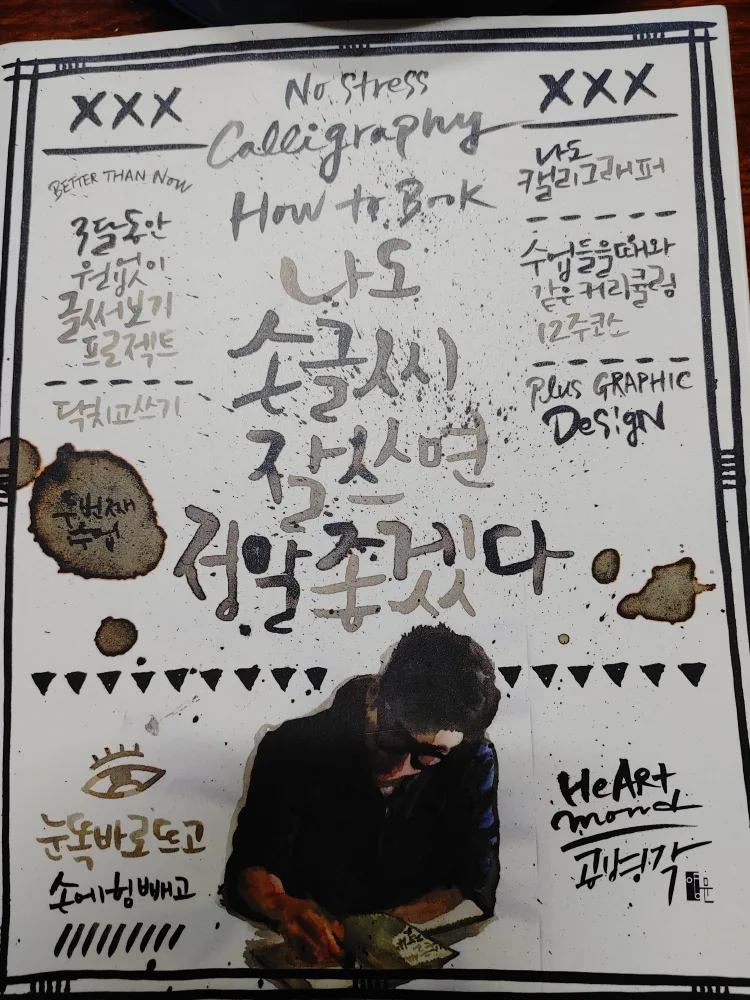 XXX
BETTER THAN NOW
3달동안
원없이
글씨써보기
프로젝트
닥치고쓰기
두번째
수업
No Stress
Calligraphy
How to Book
나도
손글씨
잘쓰면
정말좋겠다
XXX
나도
캘리그래퍼
수업들을때와
같은커리큘럼
12주코스
Plus GRAPHIC
DesigN
눈똑바로뜨고
손에힘빼고
HeARt
mond
공병각
양문